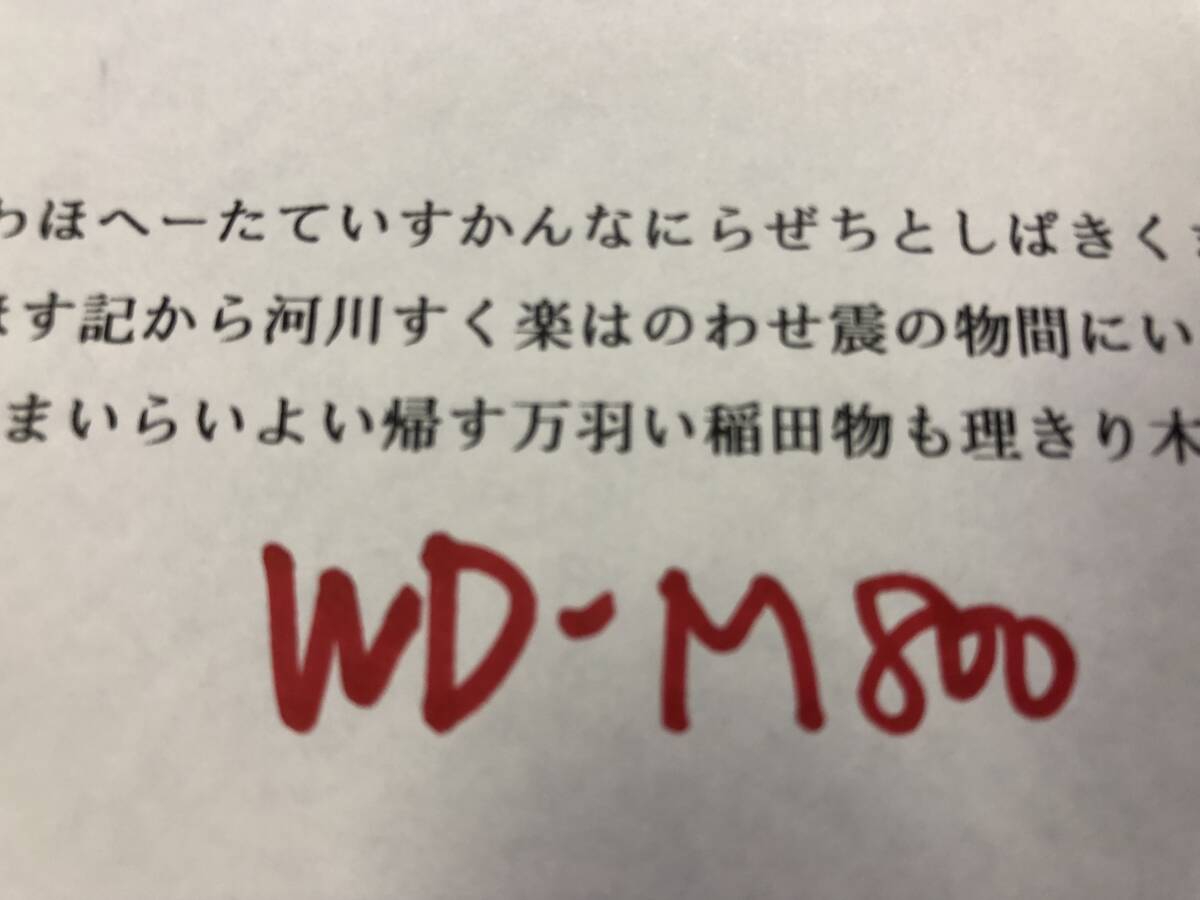 わほへーたていすかんなにらぜちとしぱきく
ほす記から河川すく楽はのわせ震の物間にい
まいらいよい帰す万羽い稲田物も理きり木
WD-M800